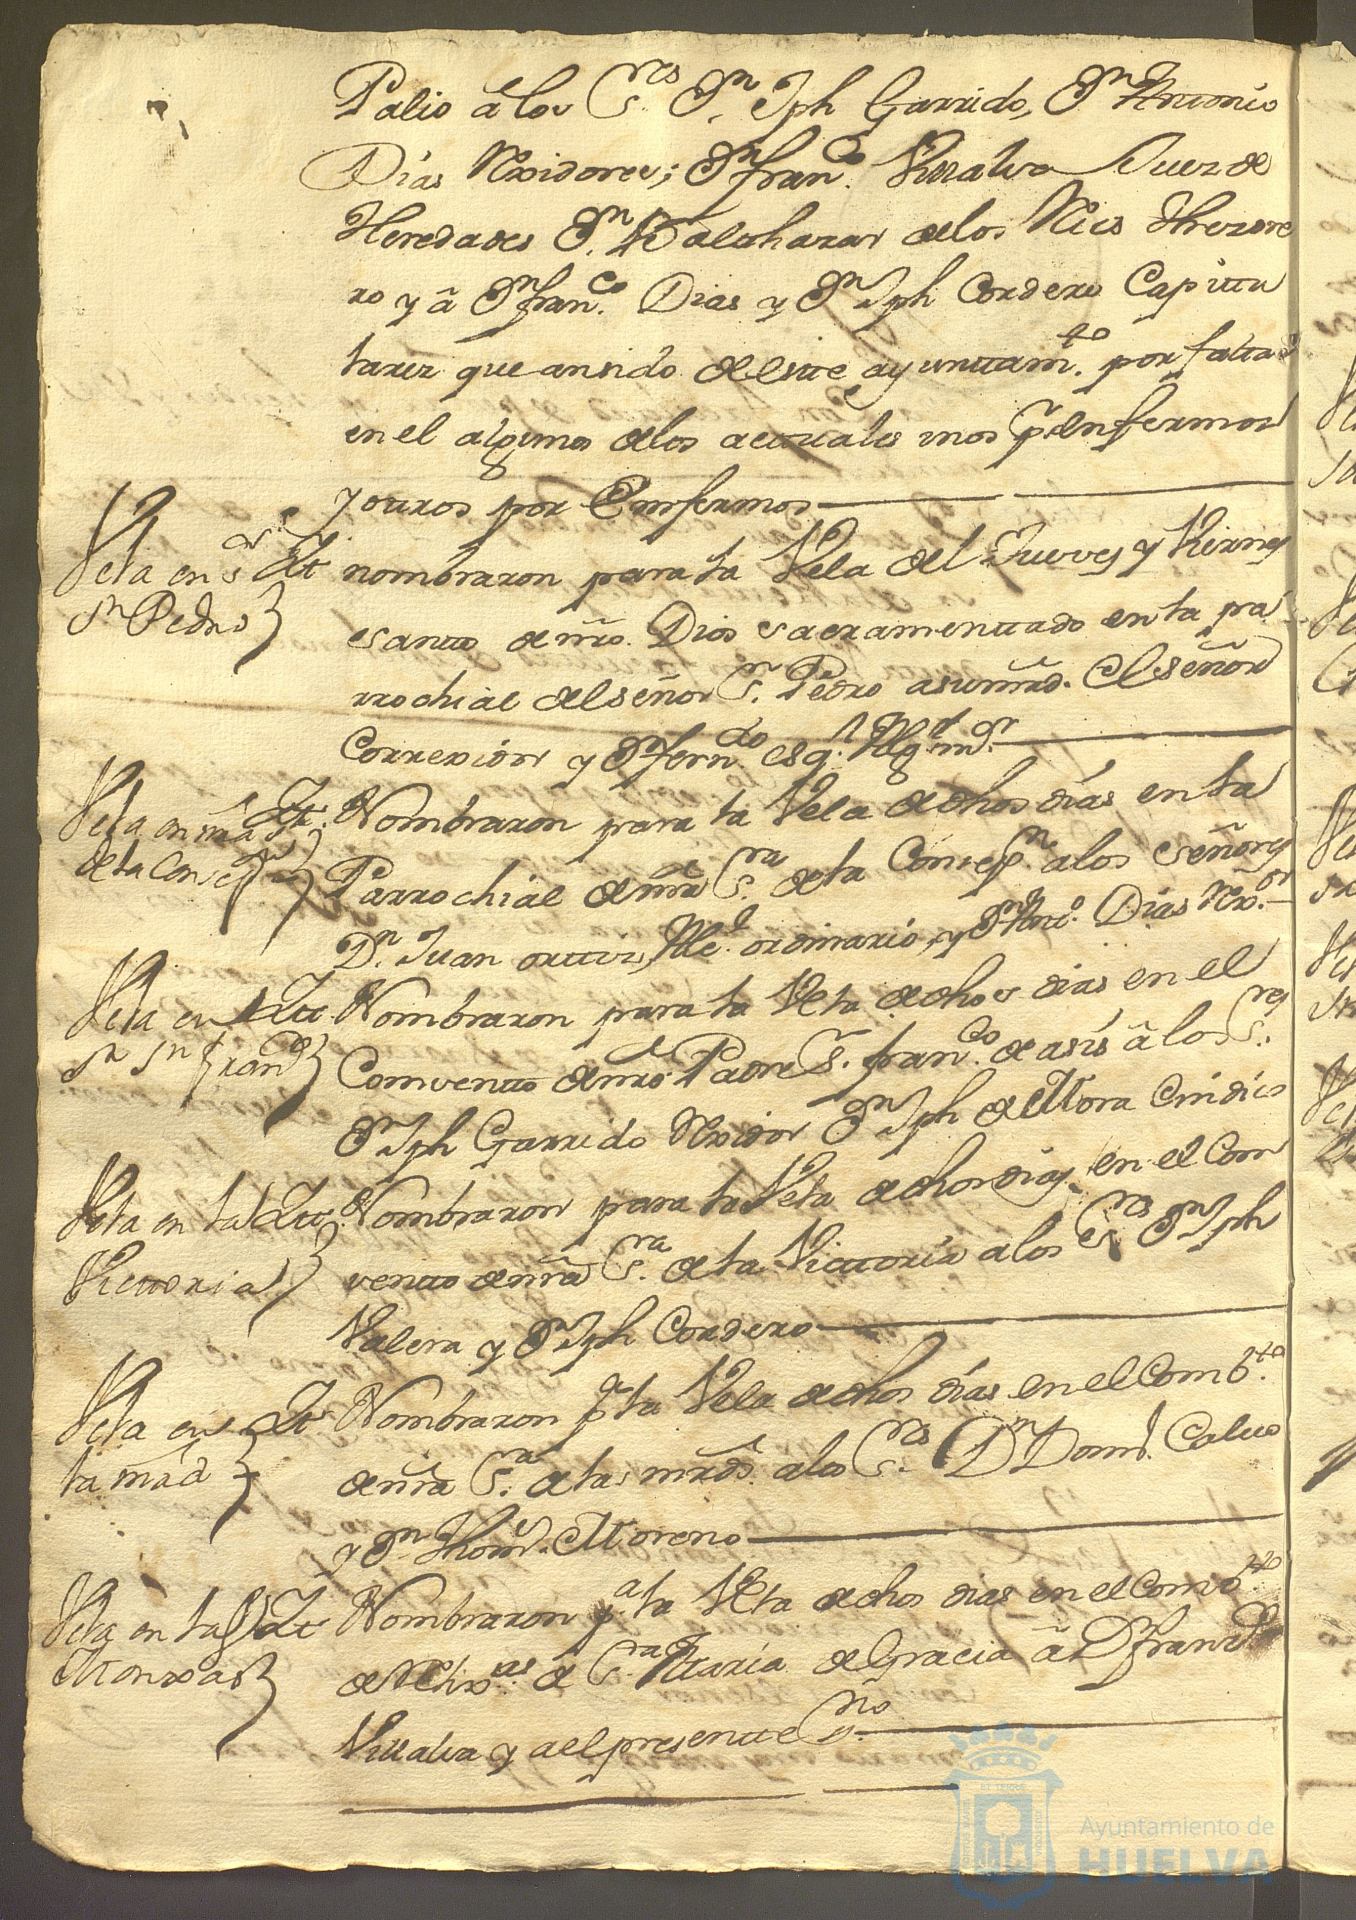 Palio a los S.res D.n Jph Garrido, D.n Antonio
Días Rexidores; D.n fran.co Villalva Juez de
Heredades D.n Balthazar de los Reies thezore
ro y a D.n fran.co Dias y D.n Jph Cordero Capittu
lares que an sido de este ayunttam.to por faltar
en el algunos de los acttuales unos p.r Enfermos
y ottros por Enfermos
Vela en s.or
S.n Pedro
Itt nombraron para la Vela del Jueves y Viernes
santto de nro. Dios sacramenttado en la pa
rrochial del señor S.n Pedro a su mrd. El señor
Correxidor y D.n fern.do esq.l Alg.l m.or
Vela en nra S.ra
de la Consepn
Itt. Nombraron para la Vela de dhos días en la
Parrochial de nra S.ra de la Concepn. a los señores
D.n Juan orttiz, Alc.e ordinario, y D.n Antto. Días Rexor.
Vela en
S.n fran.co
Itt Nombraron para la Vela de dhos dias en el
Comventto de nro Padre S.n fran.co de asís a los S.res
D.n Jph Garrido Rexidor D.n Jph de Mora Cindico
Vela en la
Victtoria
Itt. Nombraron para la Vela de dhos dias en el Com
ventto de nra S.ra de la Victtoria a los S.res D.n Jph
Valera y D.n Jph Cordero
Vela en
la mrd
Itt Nombraron p.a la Vela de dhos días en el Comb.to
de nra S.ra de las mrds. a los S.res D.n Dom.o Calvo
y D.n thom.s Moreno
Vela en las
Monxas
Itt Nombraron p.a la Vela de dhos dias en el Comb.tto
de Relix.as de S.ta Maria de Gracia a D.n fran.co
Villalva y a el presentte S.no
Ayuntamiento de
HUELVA